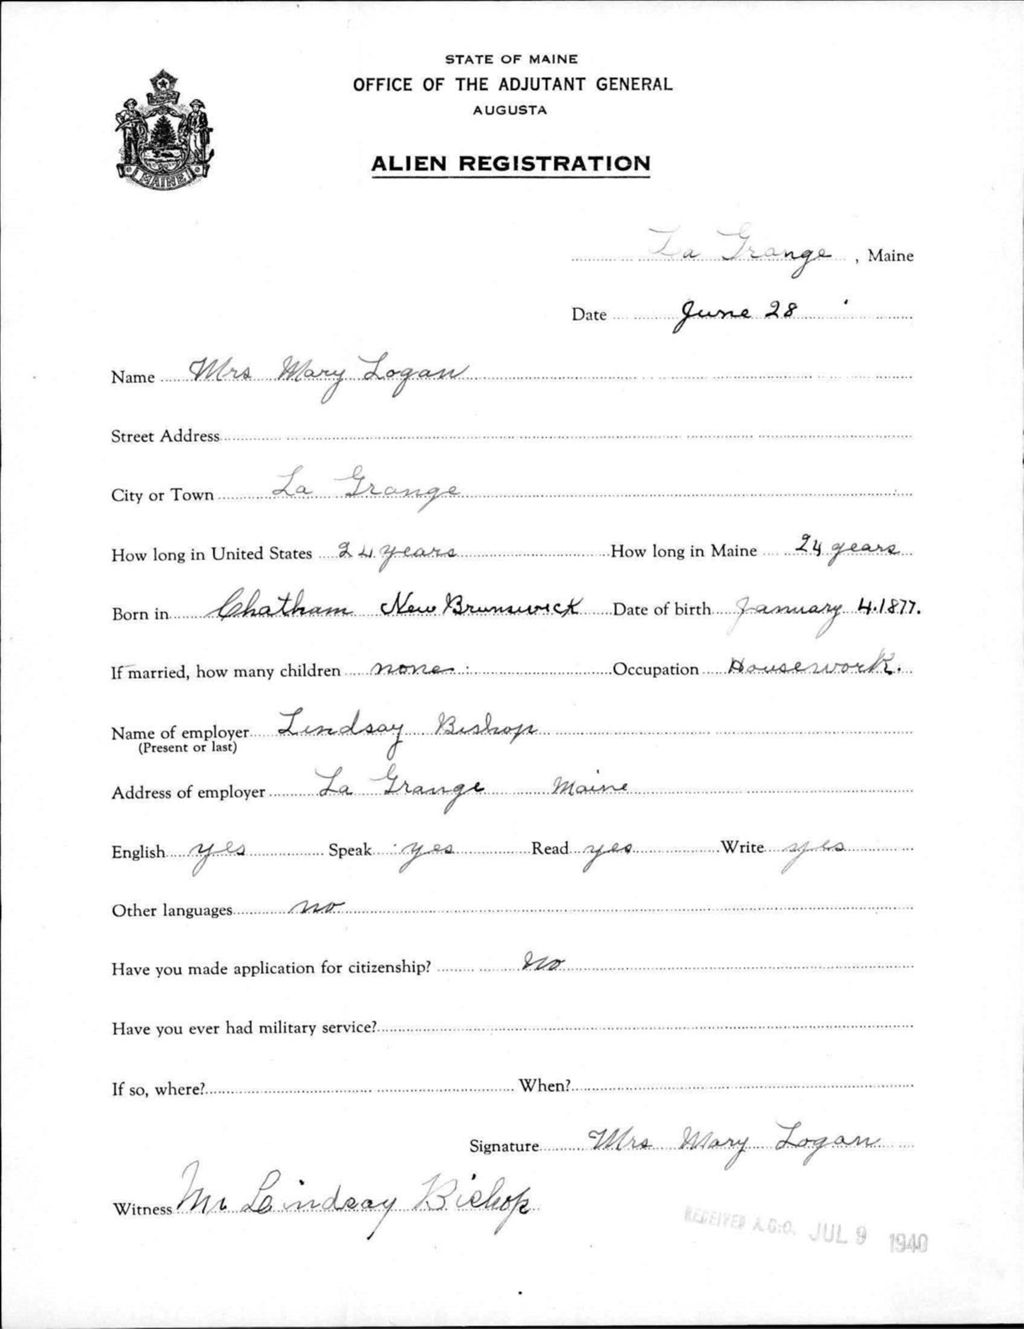 STATE OF MAINE
OFFICE OF THE ADJUTANT GENERAL
AUGUSTA
ALIEN REGISTRATION
MAINE
La Grange, Maine
Date June 28
Name Mrs Mary Logan
Street Address
City or Town La Grange
How long in United States 24 years How long in Maine 24 years
Born in Chatham New Brunswick Date of birth January 4. 1877.
If married, how many children none Occupation Housework.
Name of employer Lindsay Bishop
(Present or last)
Address of employer La Grange Maine
English yes Speak yes Read yes Write yes
Other languages no
Have you made application for citizenship? No
Have you ever had military service?
If so, where? When?
Signature Mrs Mary Logan
Witness Mr Lindsay Bishop
RECEIVED A.G.O. JUL 9 1940